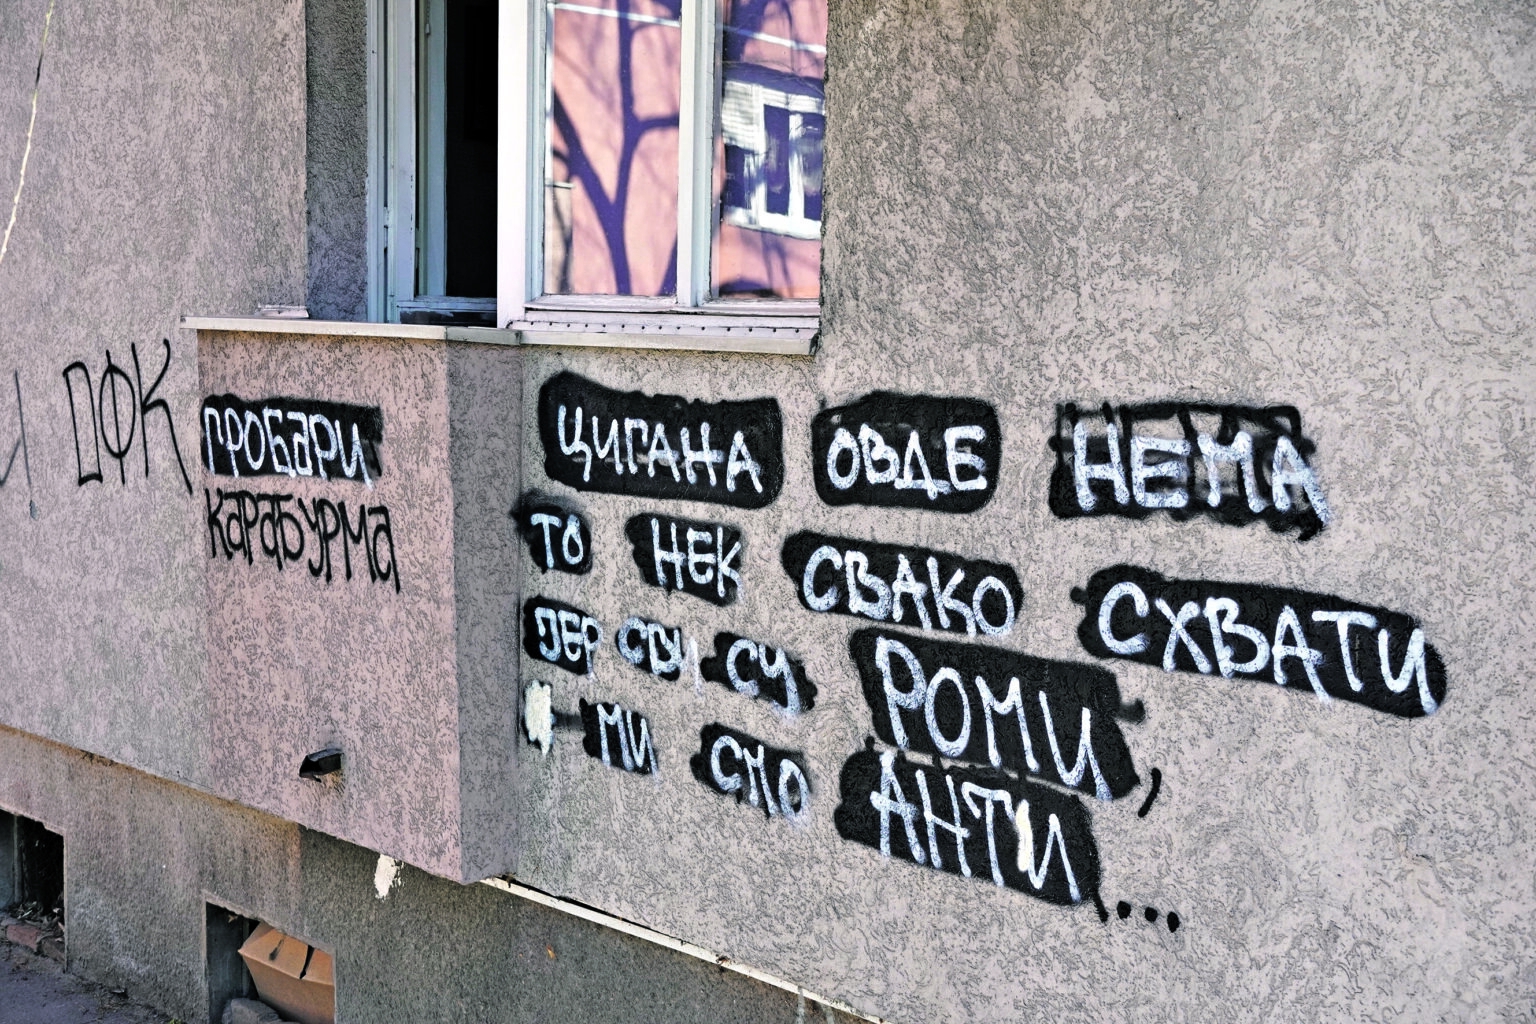 ОФК
ГРОБАРИ
КАРАБУРМА
ЦИГАНА ОВДЕ НЕМА
ТО НЕК СВАКО СХВАТИ
ЈЕР СВИ СУ РОМИ,
МИ СМО АНТИ...